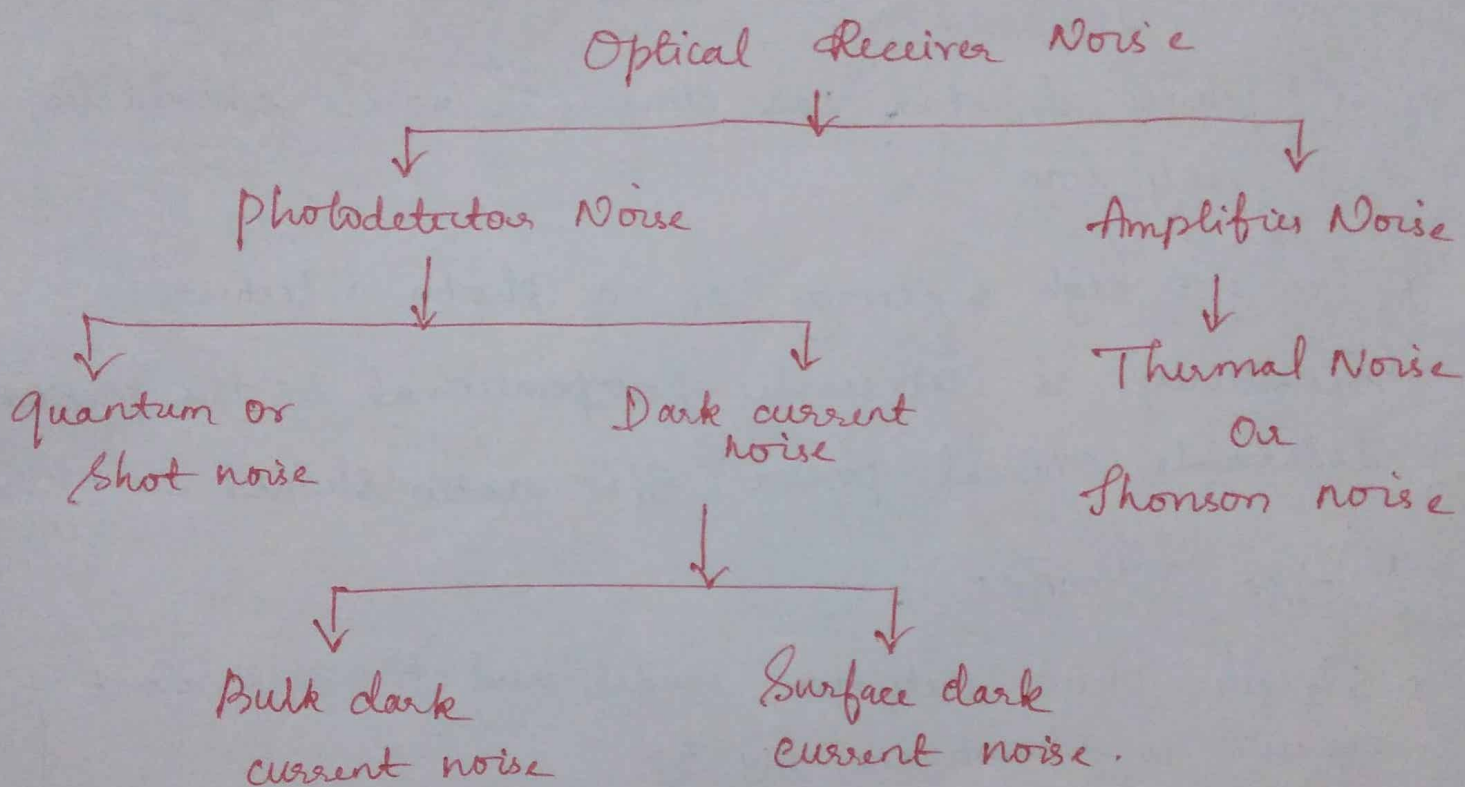 Optical Receiver Noise
Photodetector Noise
Amplifier Noise
quantum or
Shot noise
Dark current
noise
Thermal Noise
Or
Jhonson noise
Bulk dark
current noise
Surface dark
current noise.